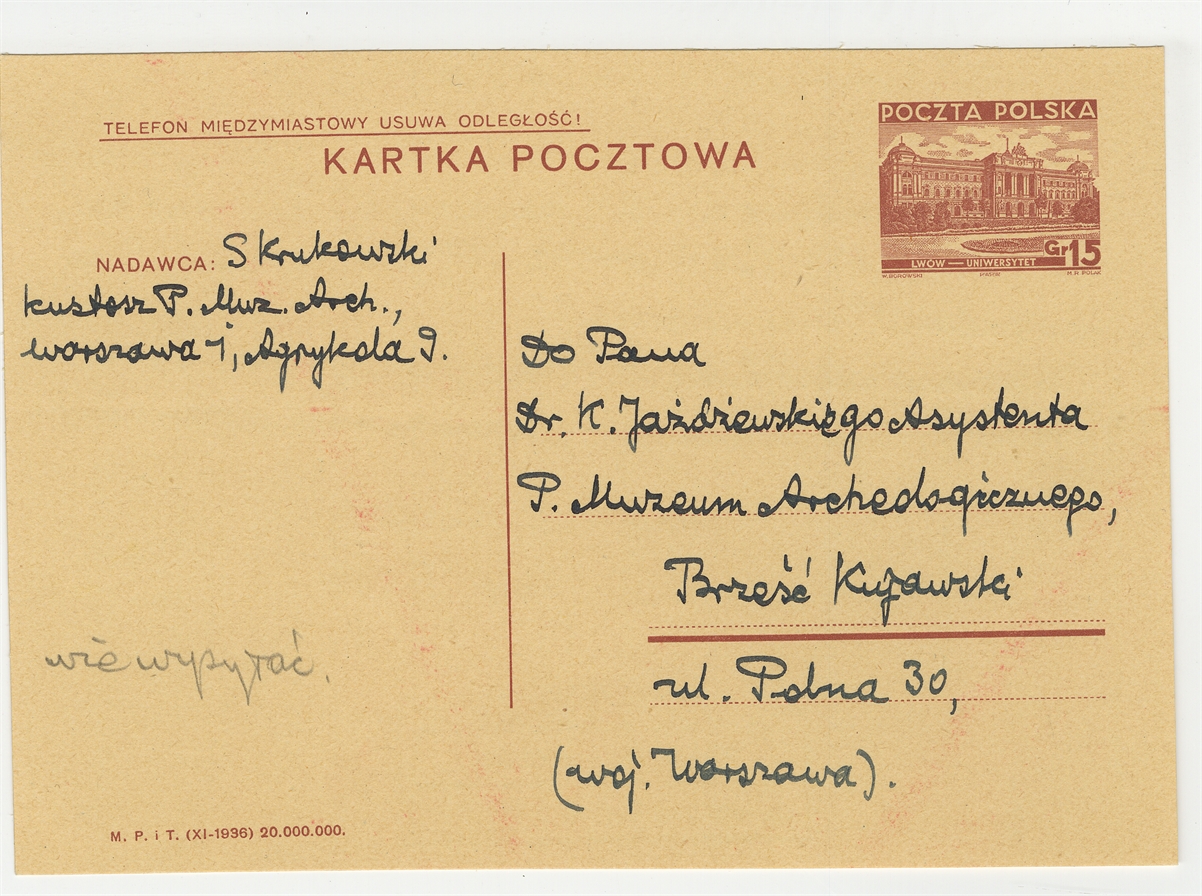 TELEFON MIĘDZYMIASTOWY USUWA ODLEGŁOŚĆ!
KARTKA POCZTOWA
POCZTA POLSKA
Gr 15
LWÓW — UNIWERSYTET
W. BOROWSKI
M. R. POLAK
NADAWCA: S Krukowski
kustosz P. Muz. Arch.,
Warszawa 1, Agrykola 9.
Do Pana
Dr. K. Jażdżewskiego Asystenta
P. Muzeum Archeologicznego,
Brześć Kujawski
ul. Polna 30,
(woj. Warszawa).
nie wysyłać.
M. P. i T. (XI-1936) 20.000.000.